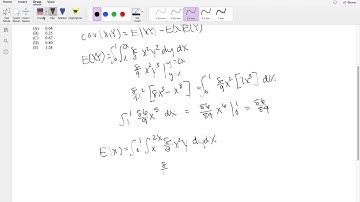 Home Insert Draw View
(A) 0.04
(B) 0.25
(C) 0.67
(D) 0.80
(E) 1.24
cov(x,y) = E(XY) - E(X)E(Y)
E(XY) = ∫₀¹ ∫ 8/3 x²y² dy dx
8/9 x²y³ |
[8x³ - x³] = ∫₀¹ 8/9 x² [7x³] dx
∫ 56/9 x⁵ dx = 56/54 x⁶ |₀¹ = 56/54
E(X) = ∫₀¹ ∫ₓ²ˣ 8/3 x²y dy dx
8